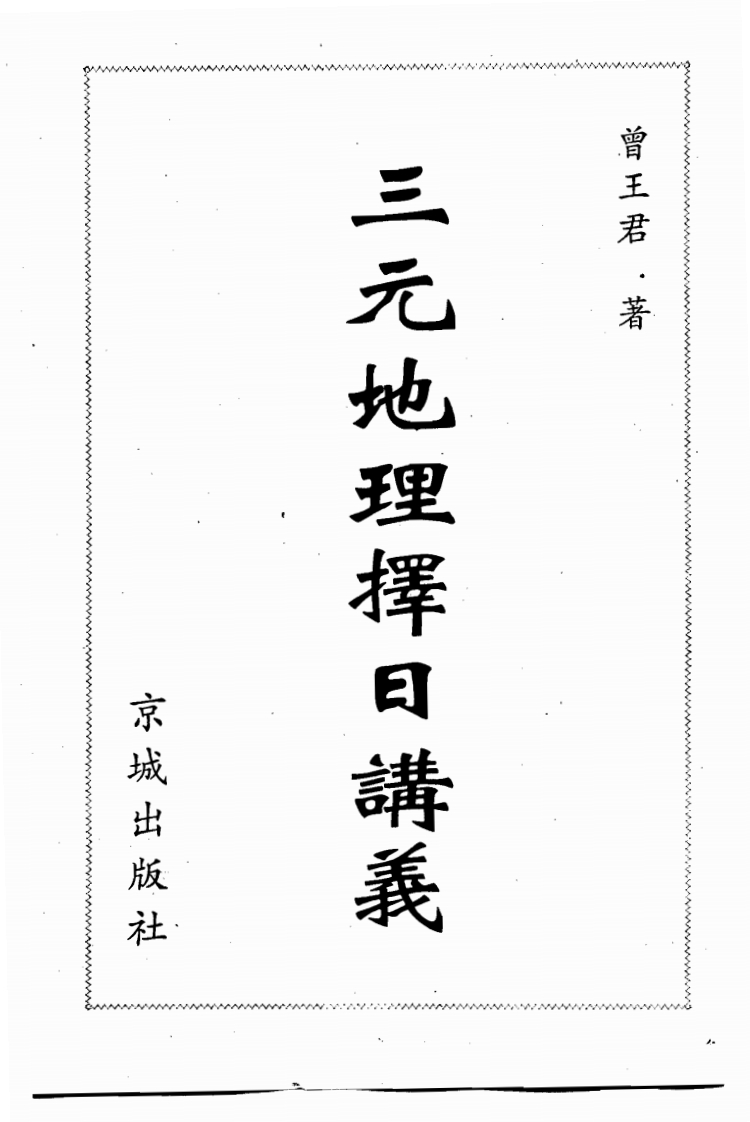 曾王君·著
三元地理擇日講義
京城出版社